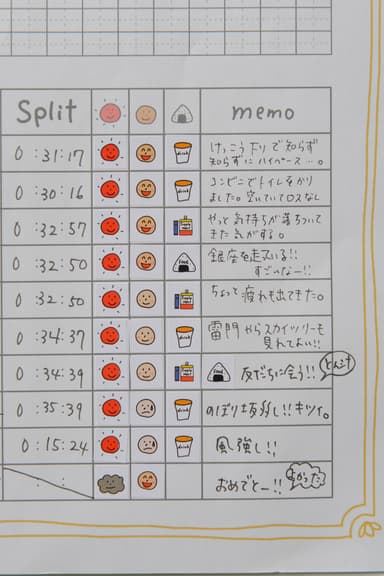 Split memo
0:31:17 drink けっこう下りで知らず
知らずにハイペース…。
0:30:16 drink コンビニでトイレをかり
ました。空いていてロスなし
0:32:57 やっと気持ちが落ちついて
きた気がする。
0:32:50 food 銀座を走ている!!
すごいなー!!
0:32:50 ちょっと疲れも出てきた。
0:34:37 drink 雷門からスカイツリーも
見れてよい!!
0:34:39 food 友だちに会う!!
0:35:39 drink のぼり坂多し!!キツイ。
0:15:24 drink 風強し!!
: : おめでとー!! よかった!